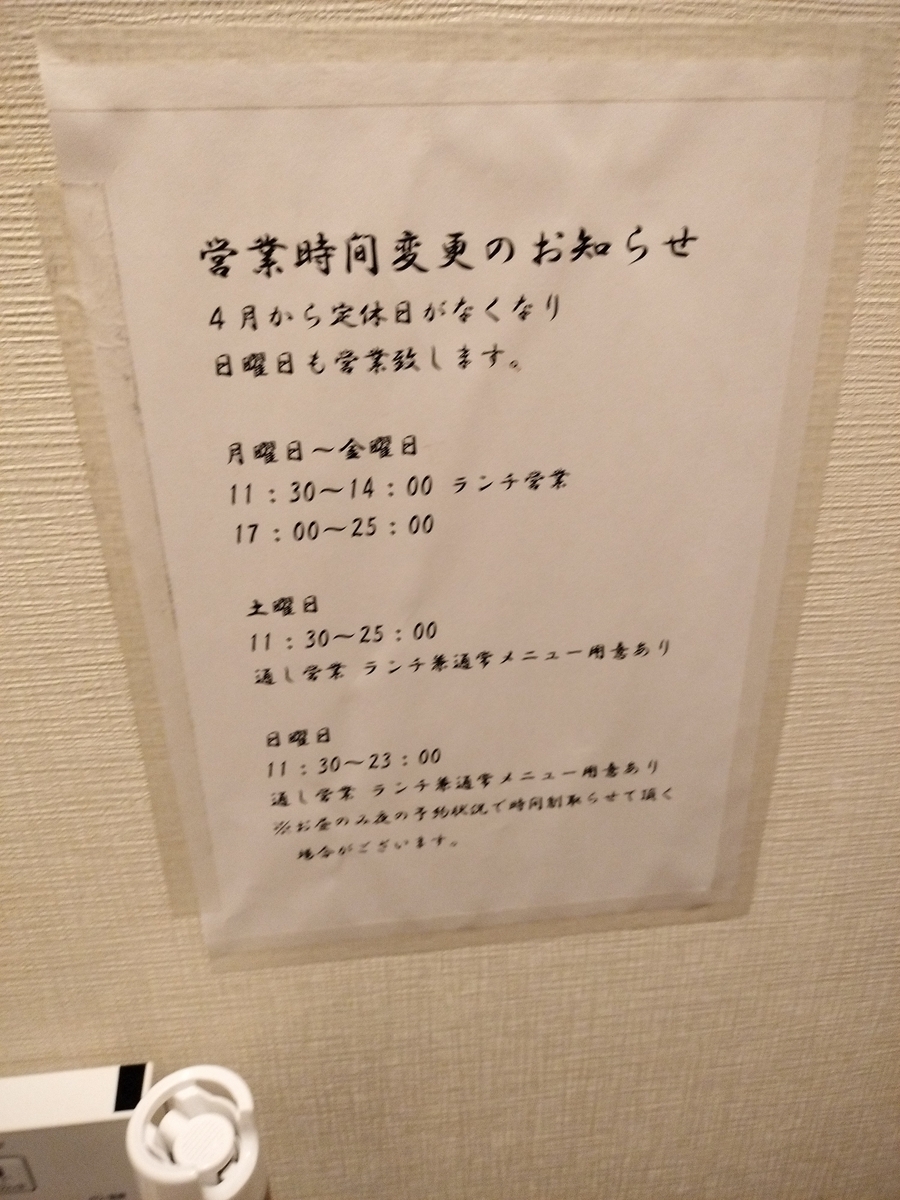 営業時間変更のお知らせ
4月から定休日がなくなり
日曜日も営業致します。
月曜日～金曜日
11：30～14：00 ランチ営業
17：00～25：00
土曜日
11：30～25：00
通し営業 ランチ兼通常メニュー用意あり
日曜日
11：30～23：00
通し営業 ランチ兼通常メニュー用意あり
※お昼のみ夜の予約状況で時間制取らせて頂く
場合がございます。